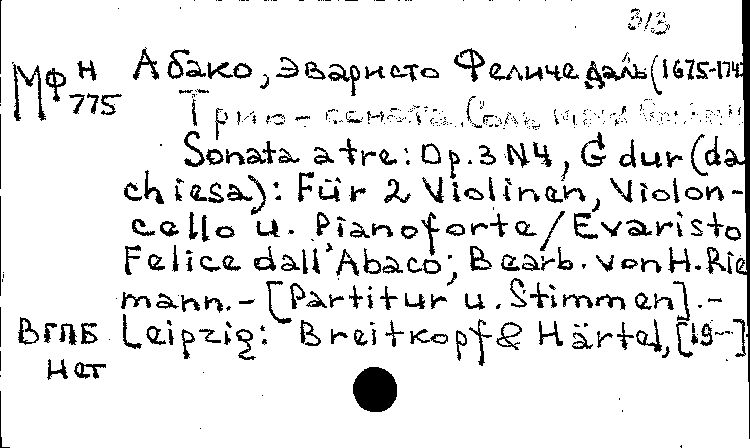 313
МФ Н 775
Абако, Эваристо Феличе даль (1675-174
Трио-соната Соль
Sonata a tre: Op. 3 N4, G dur (da
chiesa): Für 2 Violinen, Violon-
cello u. Pianoforte / Evaristo
Felice dall'Abaco; Bearb. von H. Rie
mann. - [Partitur u. Stimmen]. -
Leipzig: Breitkopf & Härtel, [19--]
ВГПБ
Нет